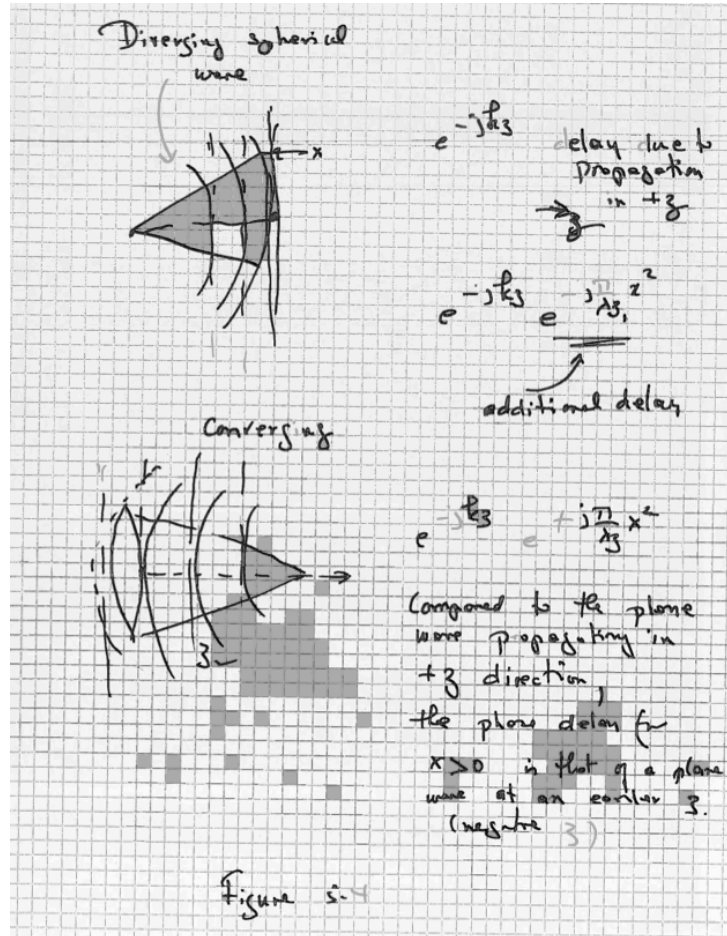 Diverging spherical
wave
x
e^{-jkz}
delay due to
propagation
in +z
z
e^{-jkz} e^{-j\frac{π}{λz_1}x^2}
additional delay
Converging
e^{-jkz} e^{+j\frac{π}{λz}x^2}
Compared to the plane
wave propagating in
+z direction,
the phase delay for
x>0 is that of a plane
wave at an earlier z.
(negative z)
Figure 5-4